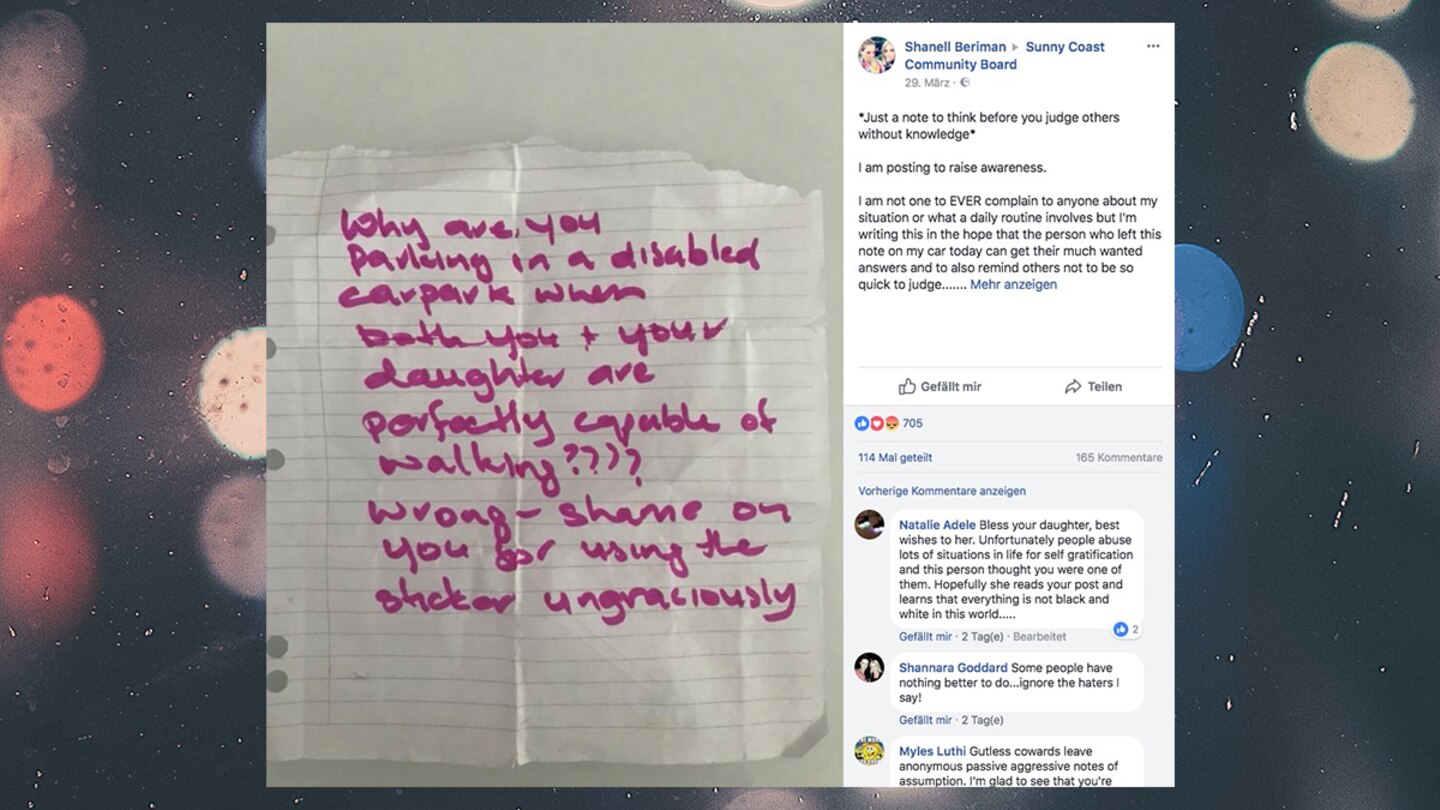 Why are you
parking in a disabled
carpark when
both you + your
daughter are
perfectly capable of
walking????
wrong - shame on
you for using the
sticker ungraciously
Shanell Beriman ▸ Sunny Coast
Community Board
29. März
*Just a note to think before you judge others
without knowledge*
I am posting to raise awareness.
I am not one to EVER complain to anyone about my
situation or what a daily routine involves but I'm
writing this in the hope that the person who left this
note on my car today can get their much wanted
answers and to also remind others not to be so
quick to judge....... Mehr anzeigen
Gefällt mir Teilen
705
114 Mal geteilt 165 Kommentare
Vorherige Kommentare anzeigen
Natalie Adele Bless your daughter, best
wishes to her. Unfortunately people abuse
lots of situations in life for self gratification
and this person thought you were one of
them. Hopefully she reads your post and
learns that everything is not black and
white in this world.....
2
Gefällt mir · 2 Tag(e) · Bearbeitet
Shannara Goddard Some people have
nothing better to do...ignore the haters I
say!
Gefällt mir · 2 Tag(e)
Myles Luthi Gutless cowards leave
anonymous passive aggressive notes of
assumption. I'm glad to see that you're